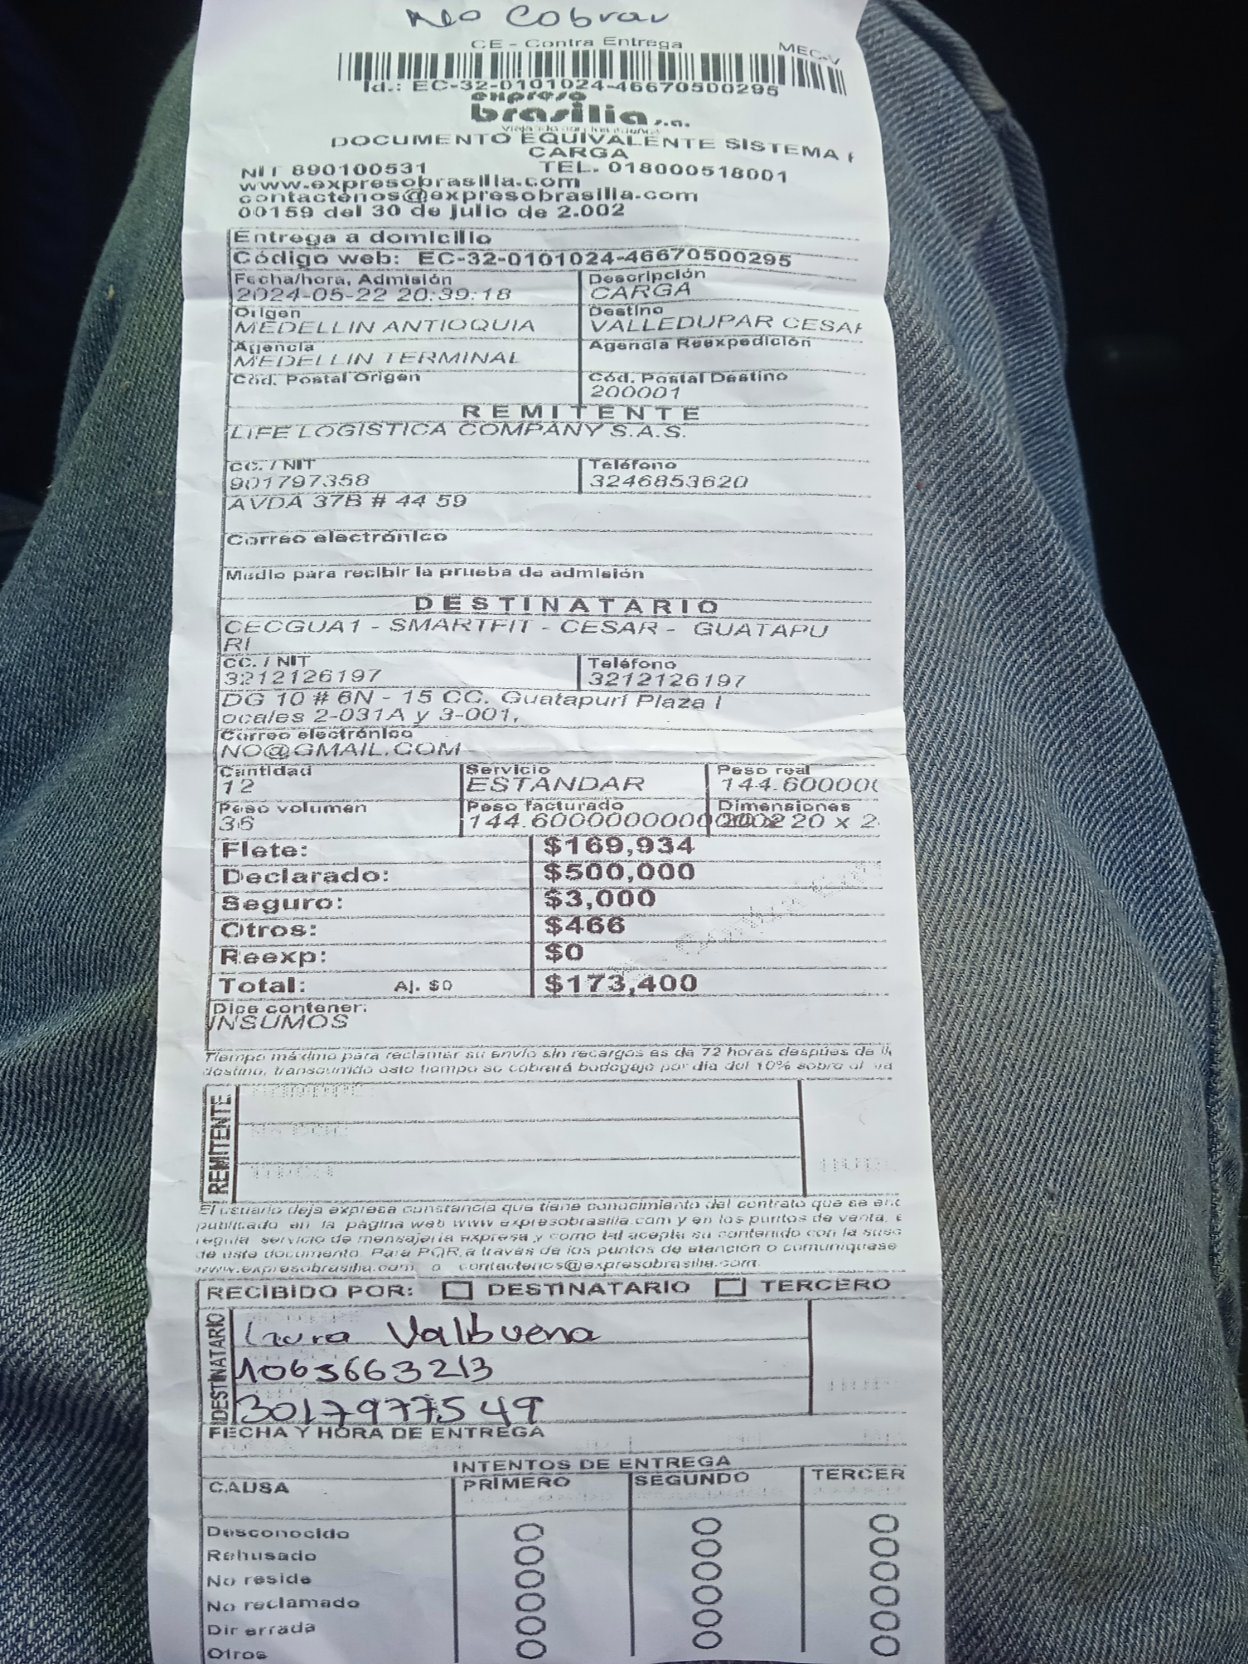 No Cobrar
CE - Contra Entrega
MEC-V
Id.: EC-32-0101024-46670500295
expreso
brasilia s.a.
DOCUMENTO EQUIVALENTE SISTEMA
CARGA
NIT 890100531 TEL. 018000518001
www.expresobrasilia.com
contactenos@expresobrasilia.com
00159 del 30 de julio de 2.002
Entrega a domicilio
Código web: EC-32-0101024-46670500295
Fecha/hora, Admisión Descripción
2024-05-22 20:39:18 CARGA
Origen Destino
MEDELLIN ANTIOQUIA VALLEDUPAR CESAR
Agencia Agencia Reexpedición
MEDELLIN TERMINAL
Cód. Postal Origen Cód. Postal Destino
200001
REMITENTE
LIFE LOGISTICA COMPANY S.A.S.
CC. / NIT Teléfono
901797358 3246853620
AVDA 37B # 44 59
Correo electrónico
Medio para recibir la prueba de admisión
DESTINATARIO
CECGUA1 - SMARTFIT - CESAR - GUATAPU
RI
CC. / NIT Teléfono
3212126197 3212126197
DG 10 # 6N - 15 CC. Guatapurí Plaza l
ocales 2-031A y 3-001,
Correo electrónico
NO@GMAIL.COM
Cantidad Servicio Peso real
12 ESTANDAR 144.600000
Peso volumen Peso facturado Dimensiones
36 144.6000000000 20 x 2
Flete: $169,934
Declarado: $500,000
Seguro: $3,000
Otros: $466
Reexp: $0
Total: Aj. $0 $173,400
Dice contener:
INSUMOS
Tiempo máximo para reclamar su envío sin recargos es de 72 horas después de
destino, transcurrido este tiempo se cobrará bodegaje por día del 10% sobre el
REMITENTE
El usuario deja expresa constancia que tiene conocimiento del contrato que se
publicado en la página web www expresobrasilia.com y en los puntos de venta,
regula servicio de mensajería expresa y como tal acepta su contenido con la
de este documento. Para PQR a través de los puntos de atención o comuníquese
www.expresobrasilia.com o contactenos@expresobrasilia.com.
RECIBIDO POR: DESTINATARIO TERCERO
DESTINATARIO
Laura Valbuena
1065663213
3017977549
FECHA Y HORA DE ENTREGA
INTENTOS DE ENTREGA
CAUSA PRIMERO SEGUNDO TERCER
Desconocido
Rehusado
No reside
No reclamado
Dir errada
Otros